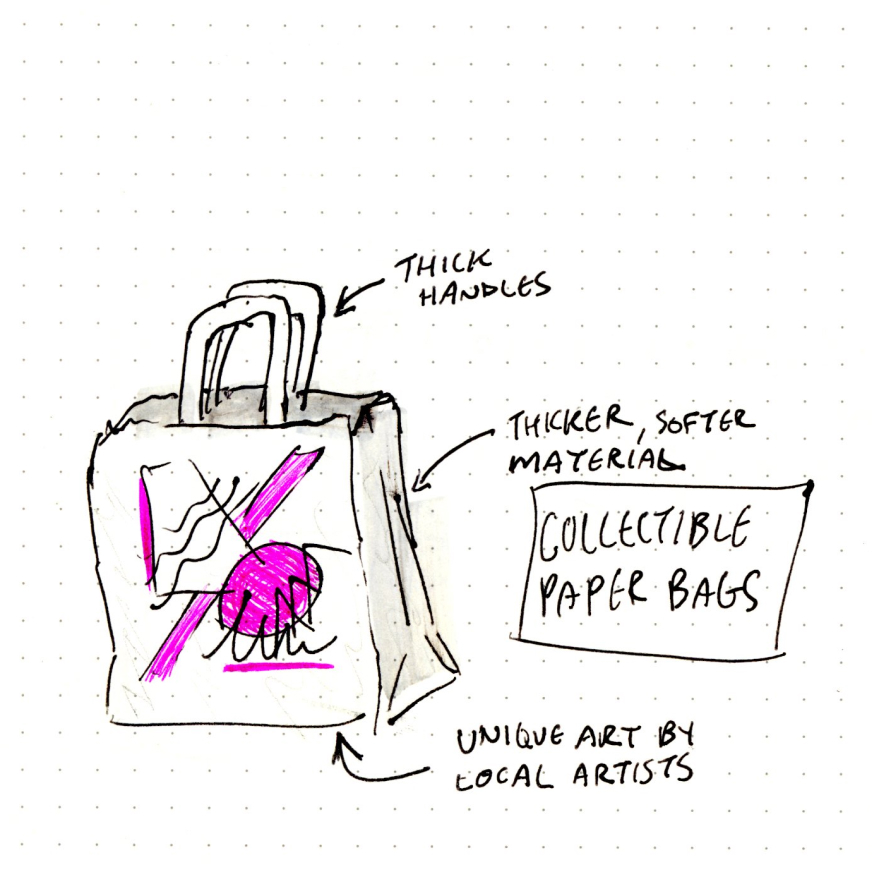 THICK
HANDLES
THICKER, SOFTER
MATERIAL
COLLECTIBLE
PAPER BAGS
UNIQUE ART BY
LOCAL ARTISTS